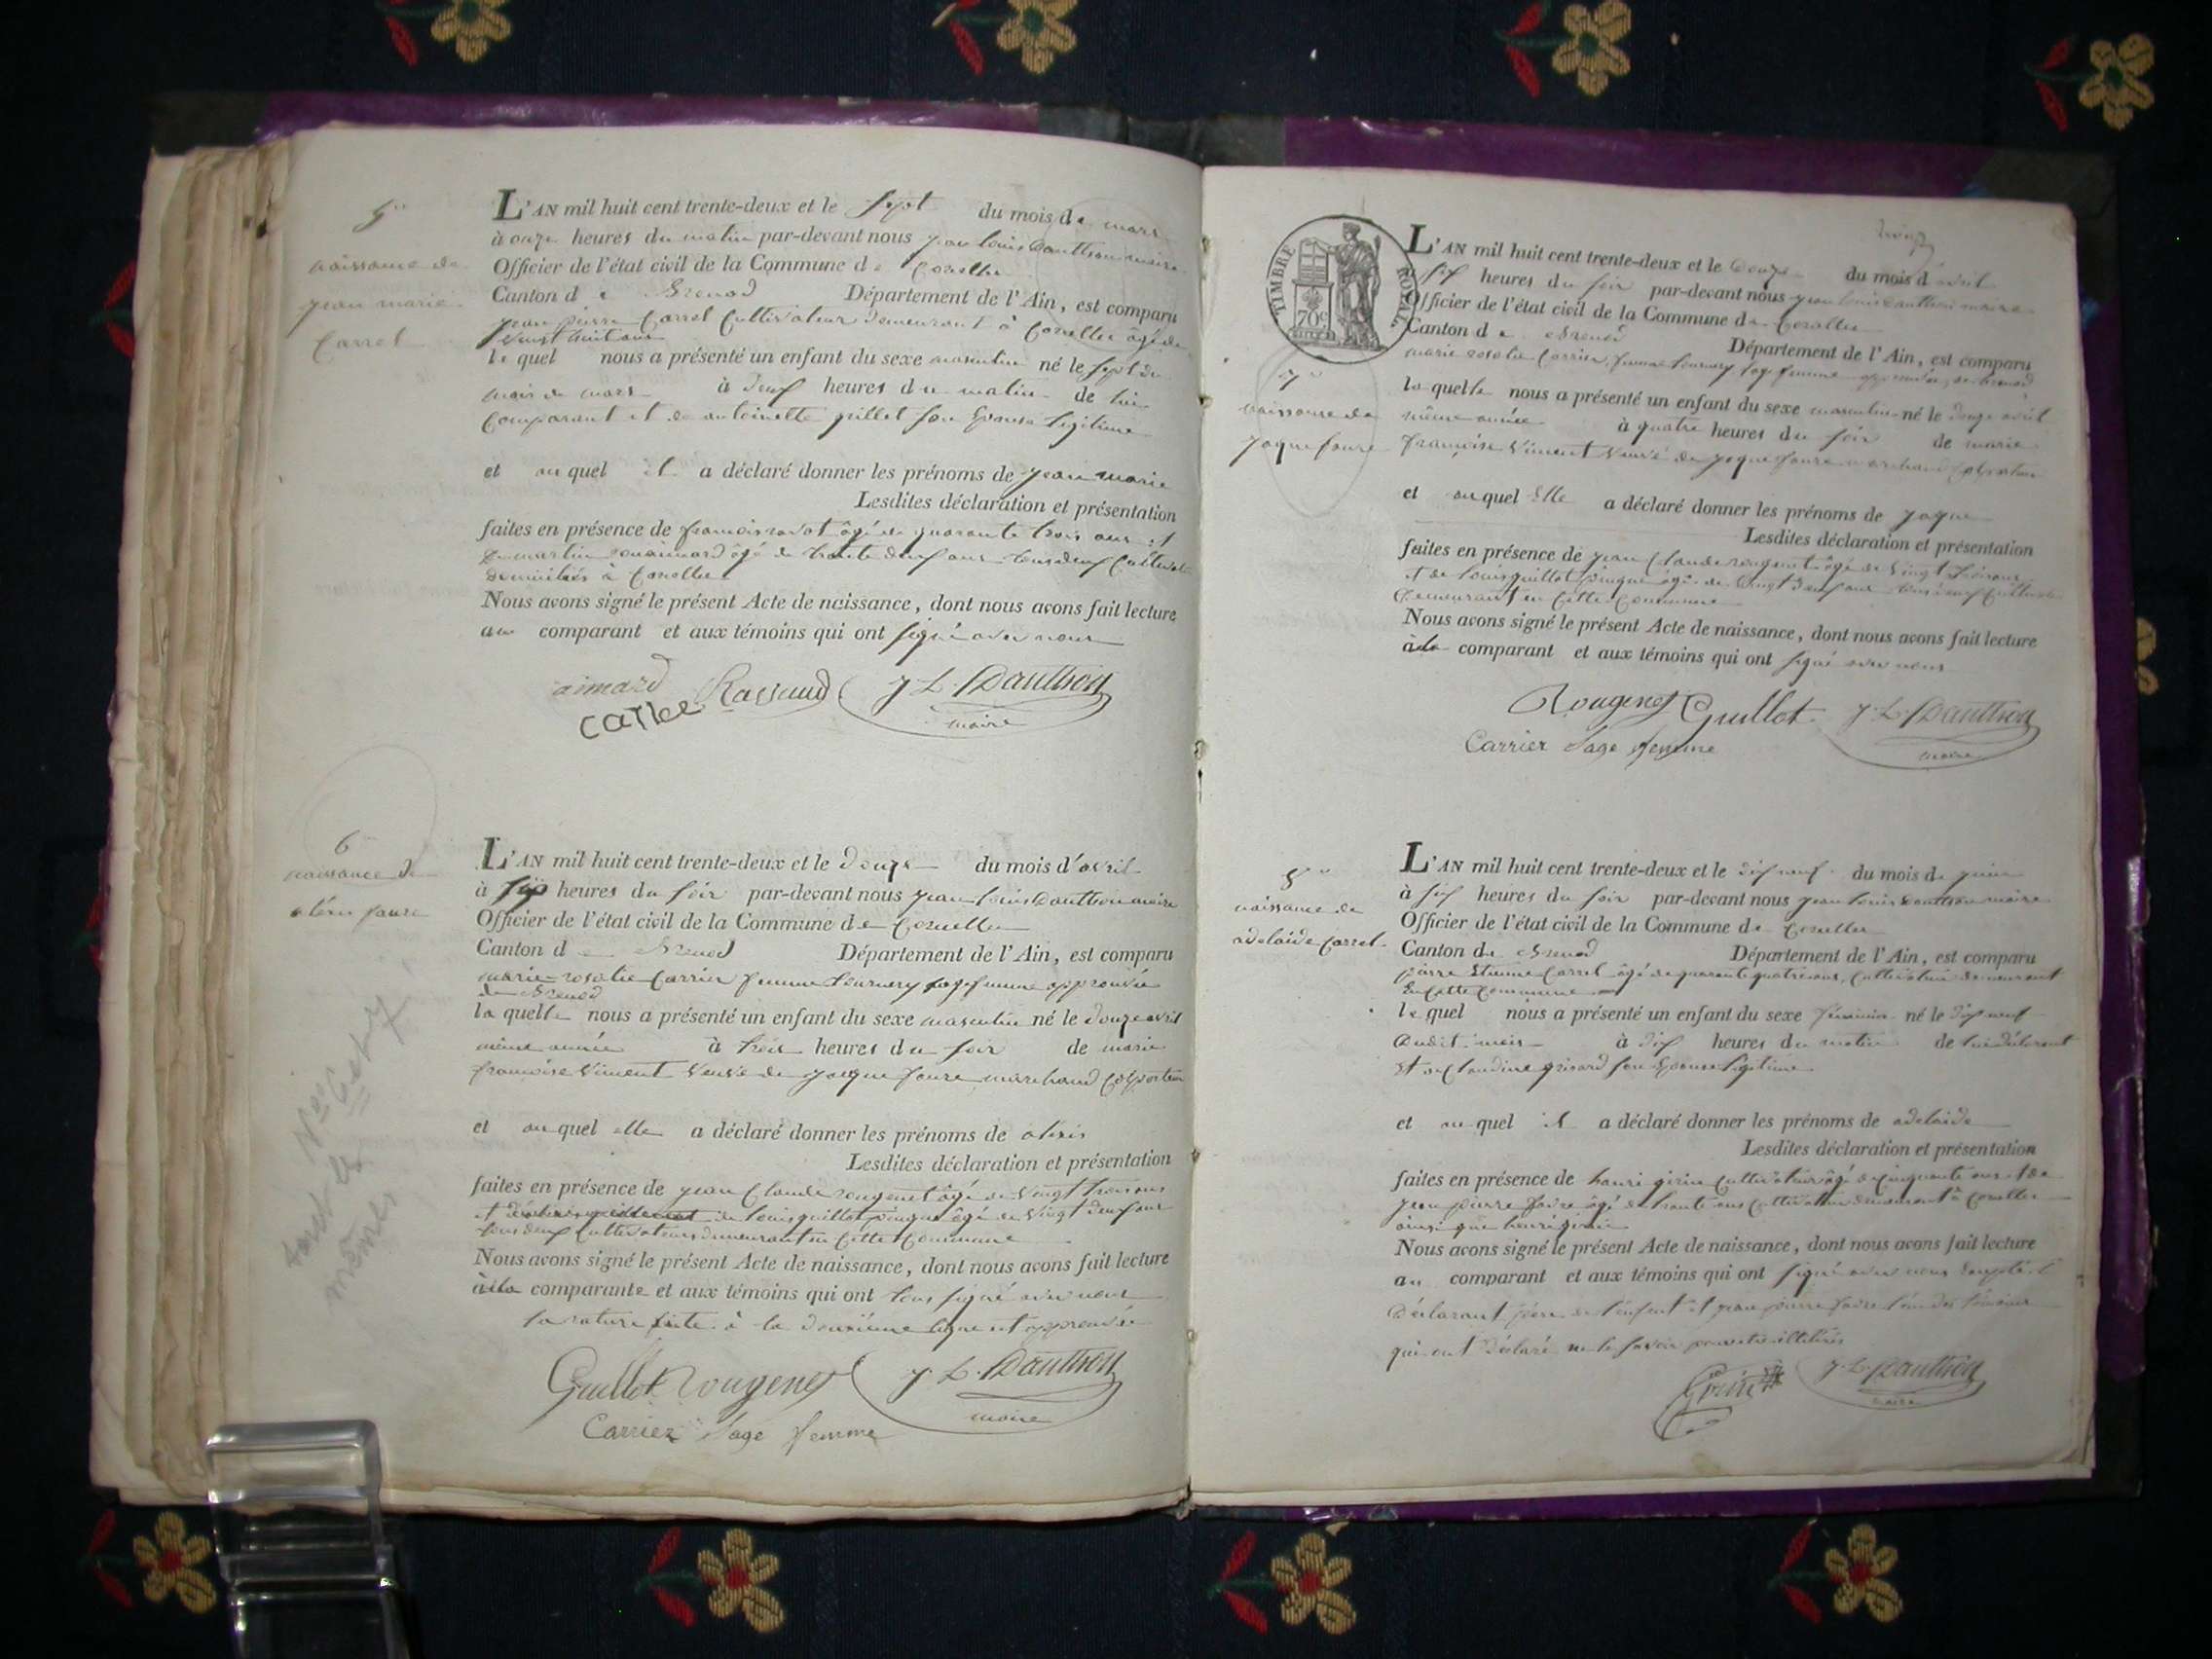 5
naissance de
jean marie
Carrel
L'AN mil huit cent trente-deux et le sept du mois de mars
à onze heures du matin par-devant nous jean louis Dauthon maire
Officier de l'état civil de la Commune de Corcelles
Canton de Brenod Département de l'Ain, est comparu
jean pierre Carrel Cultivateur demeurant à Corcelles âgé de
vingt huit ans
le quel nous a présenté un enfant du sexe masculin né le sept du
mois de mars à deux heures du matin de lui
Comparant et de antoinette grillet son Epouse légitime
et au quel il a déclaré donner les prénoms de jean marie
Lesdites déclaration et présentation
faites en présence de françois âgé de quarante trois ans et
âgé de trente deux ans tous deux Cultivat
domiciliés à Corcelles
Nous avons signé le présent Acte de naissance, dont nous avons fait lecture
au comparant et aux témoins qui ont signé avec nous
aimard Ravaud J L Dauthon
maire
6
naissance de
alexis faure
Nos 6 et 7
sont les
mêmes
L'AN mil huit cent trente-deux et le douze du mois d'avril
à six heures du soir par-devant nous jean louis Dauthon maire
Officier de l'état civil de la Commune de Corcelles
Canton de Brenod Département de l'Ain, est comparu
marie-rosalie Carrier femme tournery sage femme approuvée
de Brenod
la quelle nous a présenté un enfant du sexe masculin né le douze avril
même année à trois heures du soir de marie
françoise Vincent veuve de jacque faure marchand Colporteur
et au quel elle a déclaré donner les prénoms de alexis
Lesdites déclaration et présentation
faites en présence de jean Claude rougenet âgé de Vingt trois ans
et de louis guillot âgé de Vingt deux ans
tous deux Cultivateurs demeurant en Cette Commune
Nous avons signé le présent Acte de naissance, dont nous avons fait lecture
à la comparante et aux témoins qui ont tous signé avec nous
la rature faite à la deuxième ligne est approuvée
Guillot Rougenet J L Dauthon
maire
Carrier Sage femme
TIMBRE ROYAL
70c
7
naissance de
jaque faure
L'AN mil huit cent trente-deux et le douze du mois d'avril
six heures du soir par-devant nous jean louis Dauthon maire
Officier de l'état civil de la Commune de Corcelles
Canton de Brenod Département de l'Ain, est comparu
marie rosalie Carrier femme tournery sage femme approuvée de brenod
la quelle nous a présenté un enfant du sexe masculin né le douze avril
même année à quatre heures du soir de marie
françoise Vincent veuve de jaque faure marchand Colporteur
et au quel Elle a déclaré donner les prénoms de jaque
Lesdites déclaration et présentation
faites en présence de jean Claude rougenet âgé de Vingt trois ans
et de louis guillot âgé de Vingt deux ans tous deux Cultivateurs
demeurant en Cette Commune
Nous avons signé le présent Acte de naissance, dont nous avons fait lecture
à la comparant et aux témoins qui ont signé avec nous
Rougenet Guillot J L Dauthon
maire
Carrier Sage femme
8
naissance de
adelaide Carrel
L'AN mil huit cent trente-deux et le dix neuf du mois de juin
à six heures du soir par-devant nous jean louis Dauthon maire
Officier de l'état civil de la Commune de Corcelles
Canton de Brenod Département de l'Ain, est comparu
pierre Etienne Carrel âgé de quarante quatre ans, Cultivateur demeurant
En Cette Commune
le quel nous a présenté un enfant du sexe féminin né le dix neuf
dudit mois à dix heures du matin de lui déclarant
et de Claudine grisard son Epouse légitime
et au quel il a déclaré donner les prénoms de adelaide
Lesdites déclaration et présentation
faites en présence de henri girin Cultivateur âgé de Cinquante ans et de
jean pierre favre âgé de trente ans Cultivateur demeurant à Corcelles
ainsi que henri girin
Nous avons signé le présent Acte de naissance, dont nous avons fait lecture
au comparant et aux témoins qui ont signé avec nous Excepté le
Déclarant père de l'enfant et jean pierre favre l'un des témoins
qui ont déclaré ne le savoir pour être illitérés
Girin J L Dauthon
maire